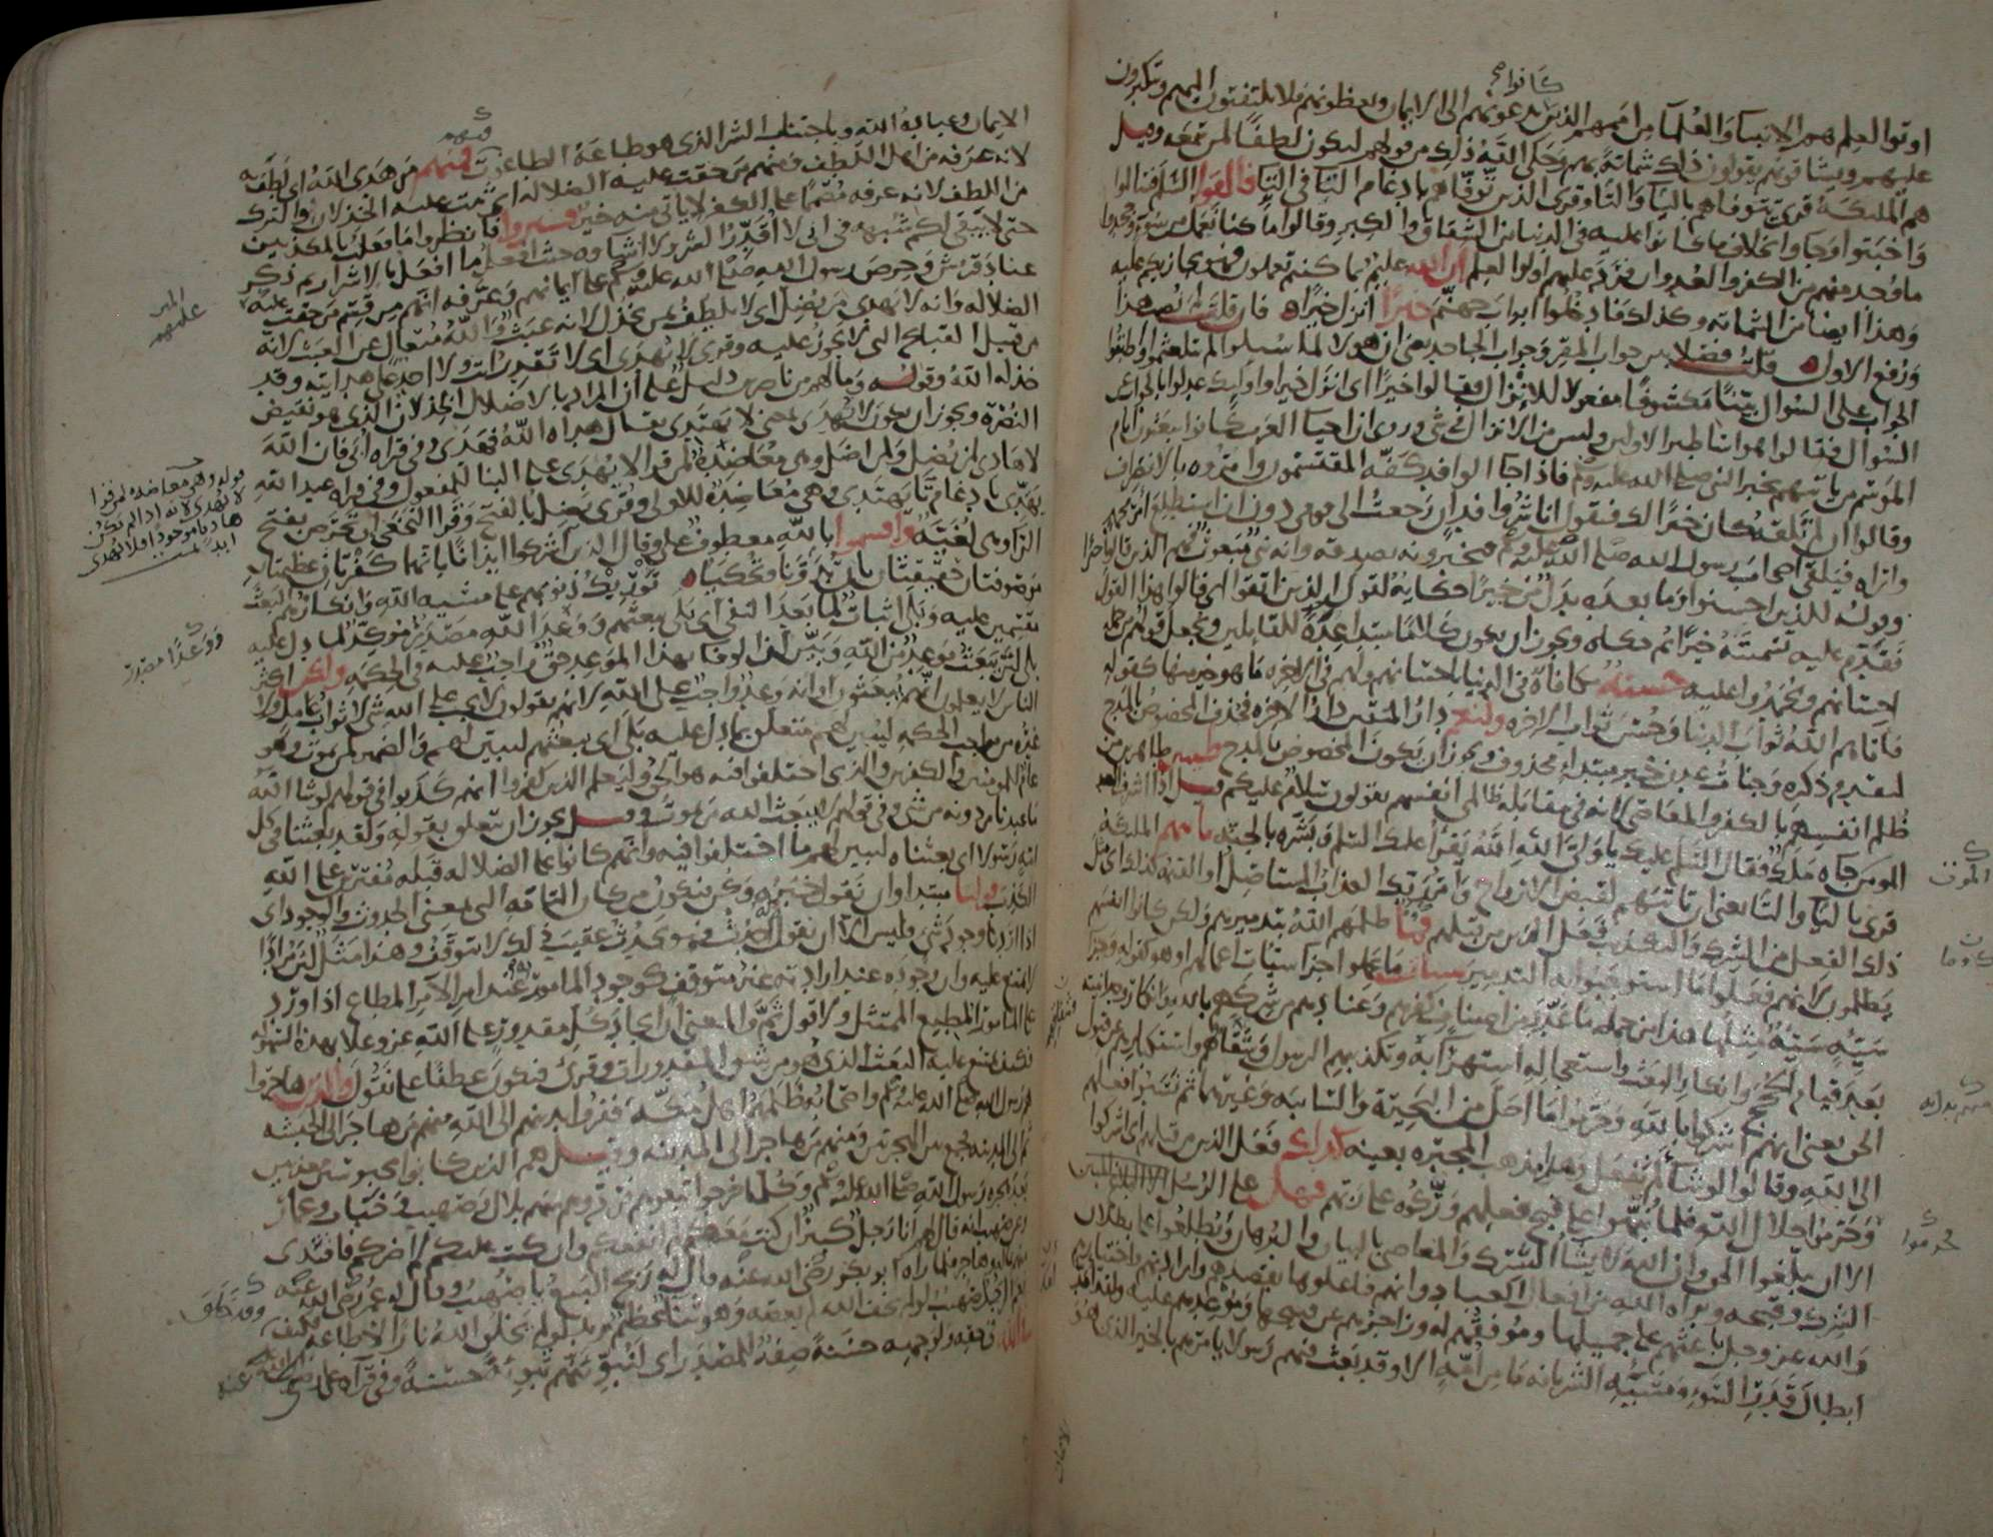 كانوا
اوتوا العلم هم الانبيا والعلما من اممهم الذين يدعونهم الى الايمان ويعظونهم فلا يلتفتون اليهم ويتكبرون
عليهم ويشاقونهم يقولون ذلك شماتة بهم وحكى الله ذلك من قولهم ليكون لطفا لمن سمعه وقيل
هم الملئكة قرى تتوفاهم باليا والتا وقرى الذين توفاهم بادغام التا في التا فالقوا السلم فسالموا
واخبتوا وجاوا بخلاف ما كانوا عليه في الدنيا من الشقاق والكبر وقالوا ما كنا نعمل من سوء وجحدوا
ما وجد منهم من الكفر والعدوان فرد عليهم اولوا العلم ان الله عليم بما كنتم تعملون فهو يجازيكم عليه
وهذا ايضا من الشماته وكذلك فادخلوا ابواب جهنم خيرا انزل خيرا فان قلت لم نصب هذا
ورفع الاول قلت فصلا بين جواب المقر وجواب الجاحد يعني ان هولا لما سيلوا لم يتلعثموا واطبقوا
الجواب على السوال بينا مكشوفا مفعولا للانزال فقالوا خيرا اي انزل خيرا واوليك عدلوا بالجواب عن
السوال فقالوا هو اساطير الاولين وليس من الانزال في شي وروى ان احيا العرب كانوا يبعثون ايام
الموسم من ياتيهم بخبر النبي صلى الله عليه وسلم فاذا جا الوافد كفه المقتسمون وامروه بالانصراف
وقالوا ان لم تلقه كان خيرا لك فيقول انا شر وافد ان رجعت الى قومي دون ان استطلع امر محمد
واراه فيلقى اصحاب رسول الله صلى الله عليه وسلم فيخبرونه بصدقه وانه نبي مبعوث فهم الذين قالوا خيرا
وقوله للذين احسنوا وما بعده بدل من خيرا حكاية لقول الذين اتقوا اي قالوا هذا القول
فقدم عليه تسميته خيرا ثم حكاه ويجوز ان يكون كلاما مبتدا عدة للقايلين ويجعل قولهم من جملة
احسانهم ويحمدوا عليه حسنة مكافاة في الدنيا باحسانهم ولهم في الاخره ما هو خير منها كقوله
فاتاهم الله ثواب الدنيا وحسن ثواب الاخره ولنعم دار المتقين دار الاخره فحذف المخصوص بالمدح
لتقدم ذكره وجنات عدن خبر مبتدا محذوف ويجوز ان يكون المخصوص بالمدح طيبين طاهرين من
ظلم انفسهم بالكفر والمعاصي لانه في مقابلة ظالمي انفسهم يقولون سلام عليكم قيل اذا اشرف العبد
المومن جاه ملك فقال السلم عليك يا ولي الله الله يقرا عليك السلم وبشره بالجنه تاتيهم الملئكة
قرى باليا والتا يعني ان تاتيهم لقبض الارواح وامر ربك العذاب المستاصل او القيمة كذلك اي مثل
ذلك الفعل من الشرك والتكذيب فعل الذين من قبلهم وما ظلمهم الله بتدميرهم ولكن كانوا انفسهم
يظلمون لانهم فعلوا ما استوجبوا به التدمير سيات ما عملوا جزا سيات اعمالهم او هو كقوله وجزا
سيئة سيئة مثلها هذا من جملة ما عدد من اصناف كفرهم وعنادهم من شركهم بالله وانكار وحدانيته
بعد قيام الحجج وانكار البعث واستعجاله استهزا به وتكذيبهم الرسول وشقاقهم واستكبارهم عن قبول
الحق يعني انهم اشركوا بالله وحرموا ما احل من البحيرة والسايبه وغيرهما ثم نسبوا فعلهم
الى الله وقالوا لو شا لم نفعل وهذا مذهب المجبره بعينه كذلك فعل الذين من قبلهم اي اشركوا
وحرموا حلال الله فلما نبهوا على قبح فعلهم وركوه على ربهم فهل على الرسل الا البلاغ المبين
الا ان يبلغوا الحق وان الله لا يشا الشرك والمعاصي بالبيان والبرهان ويطلعوا على بطلان
الشرك وقبحه وبراه الله من افعال العباد وانهم فاعلوها بقصدهم وارادتهم واختيارهم
والله عز وجل باعثهم على جميلها وموفقهم له وزاجرهم عن قبيحها وموعدهم عليه ولقد امد
ابطال قدر السو ومشية الشر بانه ما من امة الا وقد بعث فيهم رسولا يامرهم بالخير الذي هو
الايمان وعبادة الله وباجتناب الشر الذي هو طاعة الطاغوت فمنهم من هدى الله اي لطف به
لانه عرفه من اهل اللطف ومنهم من حقت عليه الضلاله اي ثبت عليه الخذلان والترك
من اللطف لانه عرفه مصمما على الكفر لا ياتي منه خير فسيروا فانظروا ما فعلت بالمكذبين
حتى لا يبقى لكم شبهه في اني لا اقدر الشر ولا اشاوه حيث افعل ما افعل بالاشرار ثم ذكر
عناد قريش وحرص رسول الله صلى الله عليه وسلم على ايمانهم وعرفه انهم من قسم من حقت عليه
الضلاله وانه لا يهدي من يضل اي لا يلطف بمن يخذل لانه عبث والله متعال عن العبث لانه
من قبيل القبايح التي لا تجوز عليه وقرى لا يهدى اي لا تقدر انت ولا احد على هدايته وقد
خذله الله وقوله وما لهم من ناصرين دليل على ان المراد بالاضلال الخذلان الذي هو نقيض
النصره ويجوز ان يكون لا يهدي بمعنى لا يهتدي يقال هداه الله فهدى وفي قراه ابي فان الله
لا هادي لمن يضل ولمن اضل وهي معاضدة لمن قرا لا يهدى على البنا للمفعول وفي قراه عبد الله
يهدي بادغام تا يهتدي وهي معاضدة للاولى وقرى يضل بالفتح وقرا النخعي ان تحرص بفتح
الرا وهي لغيه واقسموا بالله معطوف على وقال الذين اشركوا ايذانا بانهما كفرتان عظيمتان
موصوفتان حقيقتان بان تحكيا وتدونا توريك ذنوبهم على مشيه الله وانكارهم البعث
مقسمين عليه وبلى اثبات لما بعد النفي اي بلى يبعثهم ووعد الله مصدر موكد لما دل عليه
بلى لان يبعث موعد من الله وبين ان الوفا بهذا الموعد حق واجب عليه في الحكمه ولكن اكثر
الناس لا يعلمون انهم يبعثون او انه وعد واجب على الله لانهم يقولون لا يجب على الله شي لا ثواب عامل ولا
غيره من مواجب الحكمه ليبين لهم متعلق بما دل عليه بلى اي يبعثهم ليبين لهم والضمير لمن يموت وهو
عام للمومنين والكافرين والذي اختلفوا فيه هو الحق وليعلم الذين كفروا انهم كذبوا في قولهم لو شا الله
ما عبدنا من دونه من شي وفي قولهم لا يبعث الله من يموت وقيل يجوز ان يتعلق بقوله ولقد بعثنا في كل
امة رسولا اي بعثناه ليبين لهم ما اختلفوا فيه وانهم كانوا على الضلاله قبله مفترين على الله
الكذب قولنا مبتدا وان نقول خبره وكن فيكون من كان التامه التي بمعنى الحدوث والوجود اي
اذا اردنا وجود شي فليس الا ان نقول له احدث فهو يحدث عقيب ذلك لا يتوقف وهذا مثل لان مرادا
لا يمتنع عليه وان وجوده عند ارادته غير متوقف كوجود المامور به عند امر الآمر المطاع اذا ورد
على المامور المطيع الممتثل ولا قول ثم والمعنى ان ايجاد كل مقدور على الله عز وعلا بهذه السهوله
فكيف يمتنع عليه البعث الذي هو من شق المقدورات وقرى فيكون عطفا على نقول والذين هاجروا
هم رسول الله صلى الله عليه وسلم واصحابه ظلمهم اهل مكة ففروا بدينهم الى الله منهم من هاجر الى الحبشه
ثم الى المدينه فجمع بين الهجرتين ومنهم من هاجر الى المدينه وقيل هم الذين كانوا محبوسين معذبين
بعد هجره رسول الله صلى الله عليه وسلم وكلما خرجوا تبعوهم فردوهم منهم بلال وصهيب وخباب وعمار
وعن صهيب انه قال لهم انا رجل كبير ان كنت معكم لم انفعكم وان كنت عليكم لم اضركم فافتدى
منهم بماله وهاجر فلما راه ابو بكر رضي الله عنه قال له ربح البيع يا صهيب وقال له عمر رضي الله عنه
نعم الرجل صهيب لو لم يخف الله لم يعصه وهو ثنا عظيم يريد لو لم يخلق الله نارا لاطاعه فكيف
في الله في حقه ولوجهه حسنة صفة للمصدر اي لنبوئنهم تبوئة حسنة وفي قراه علي رضي الله عنه
فمنهم
عليهم
قوله وهي معاضده لمن قرا
لا يهدى لانه اذا لم يكن
هاد ما موجودا فلا يهدى
ابدا تمت
ووعدا مصدر
وقد خلق